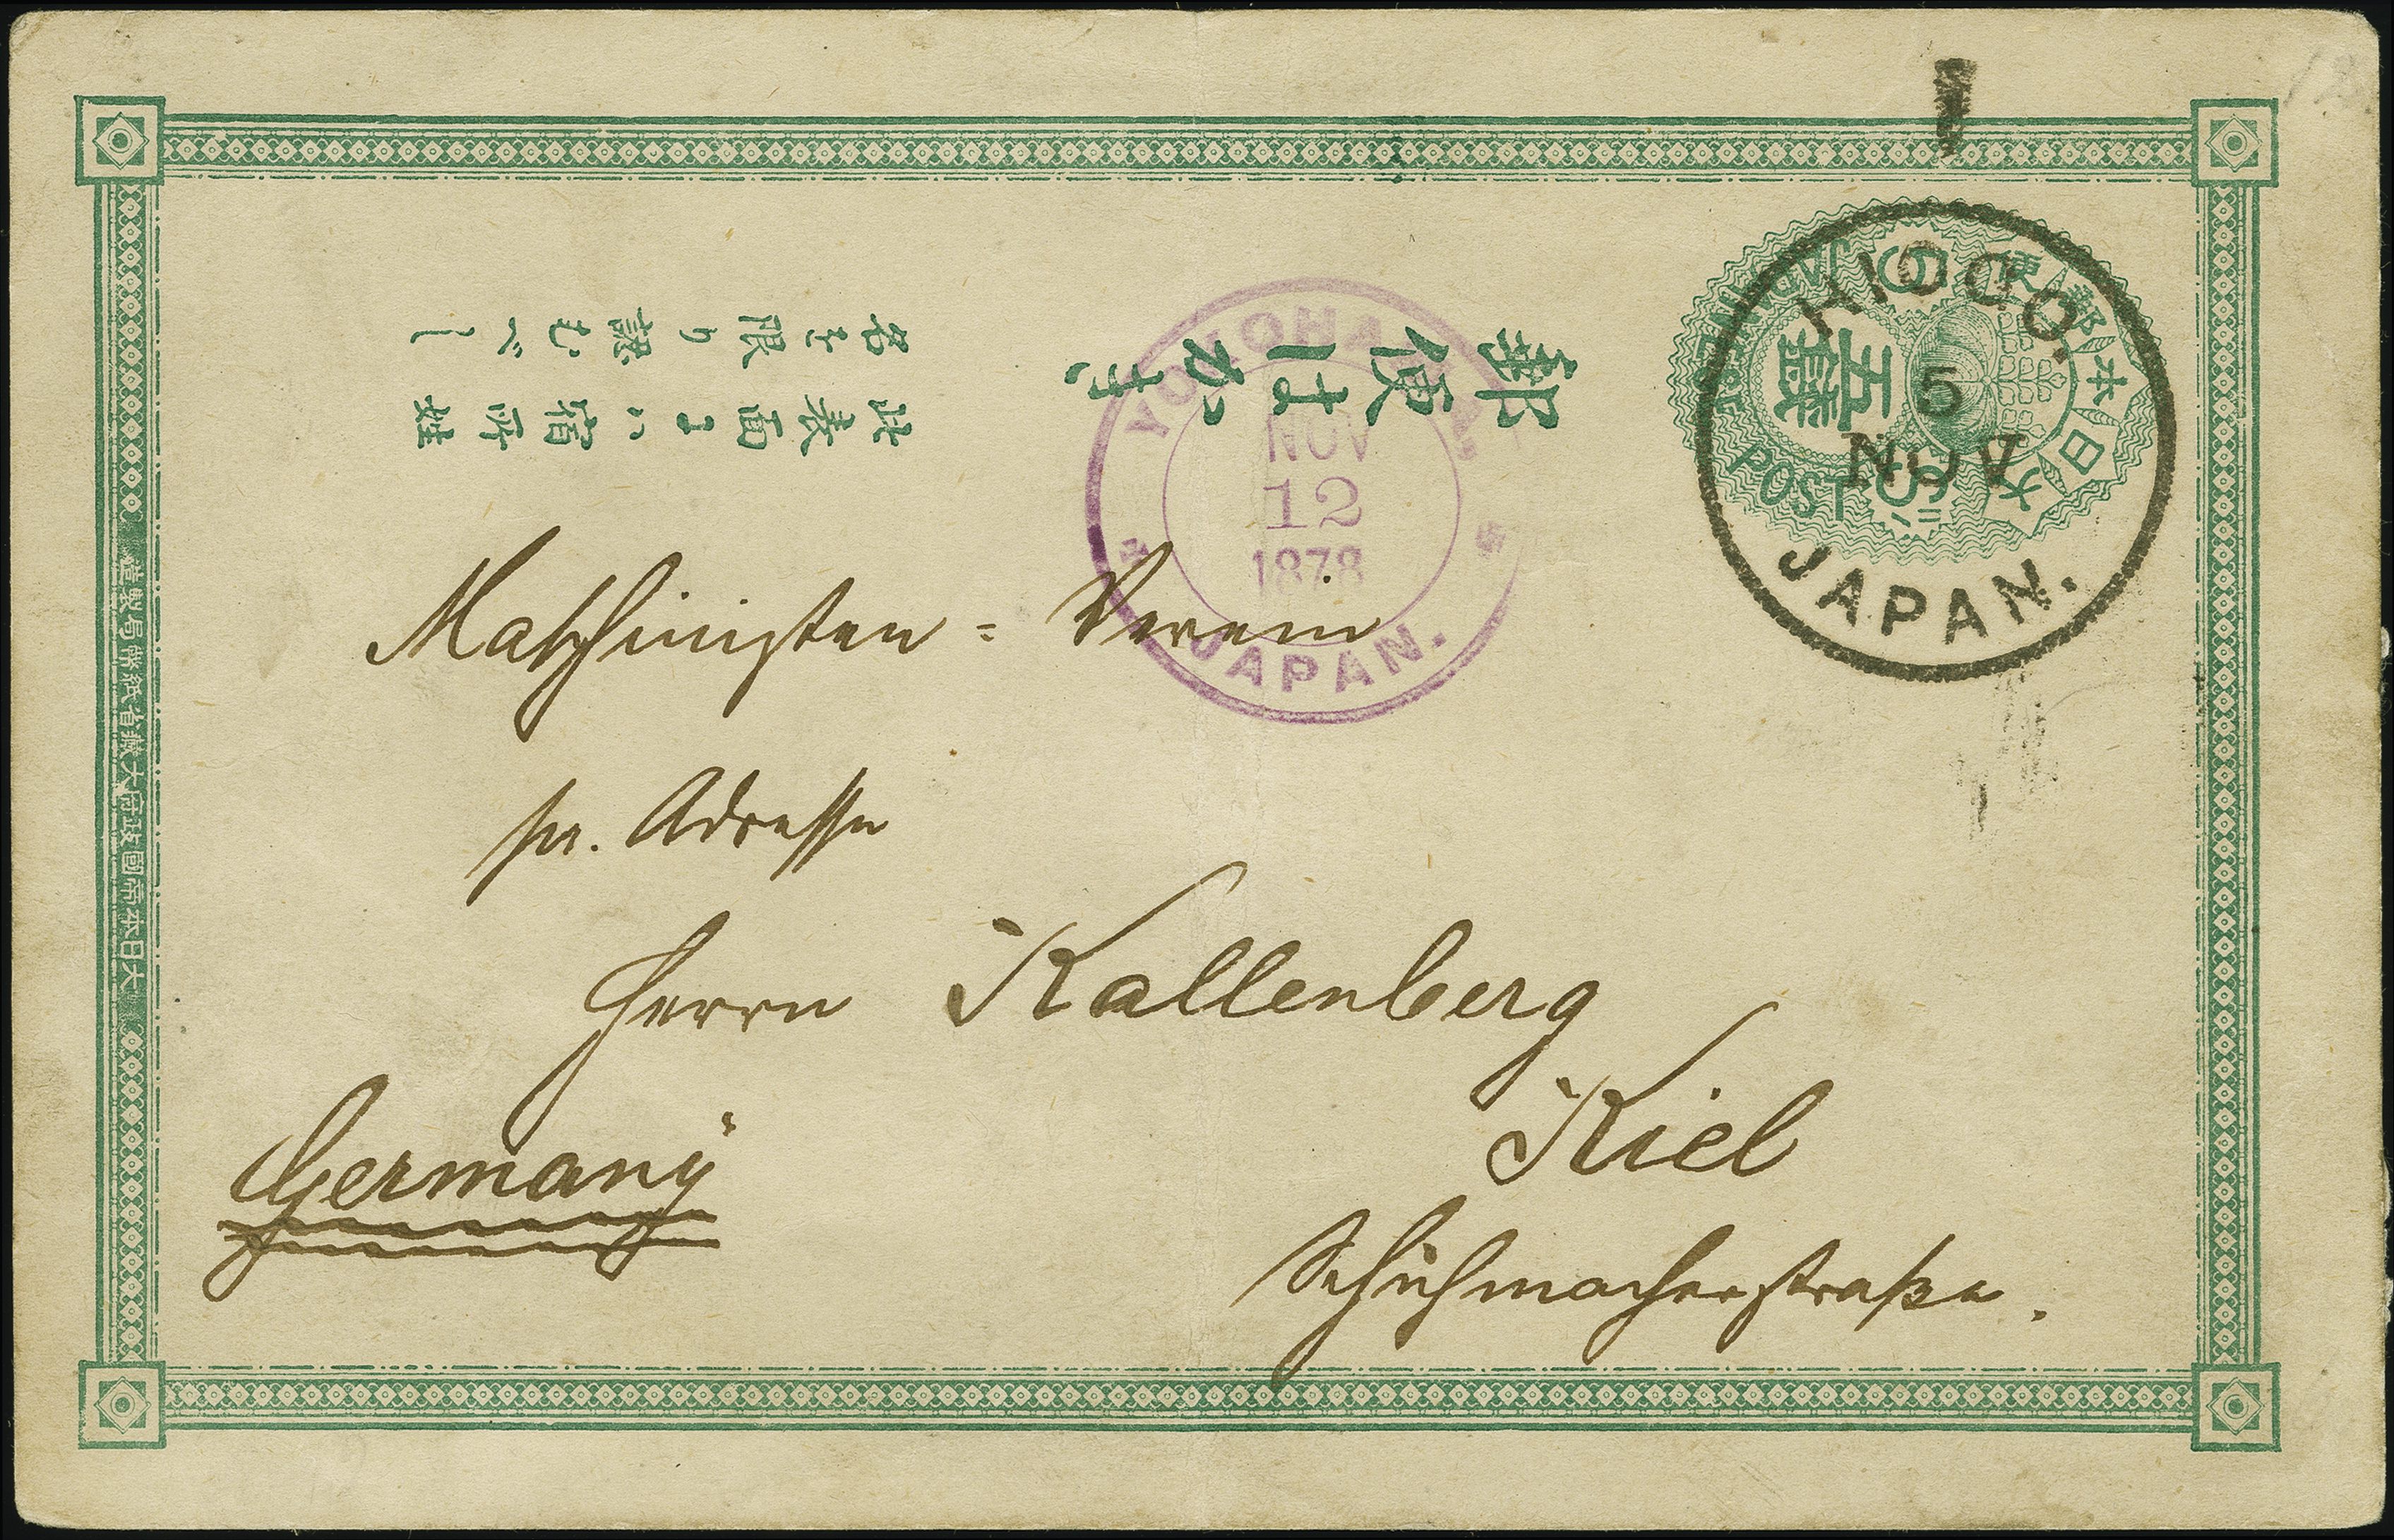 郵便はがき
此表面にハ宿所姓
名を限り認むべし
大日本郵便
五錢
POST
HIOGO.
5
NOV
JAPAN.
YOKOHAMA,
NOV
12
1878
JAPAN.
Maschinisten = Verein
pr. Adresse
Herrn Kallenberg
Kiel
Germany
Schuhmacherstraße.
大日本帝國政府大藏省紙幣局製造